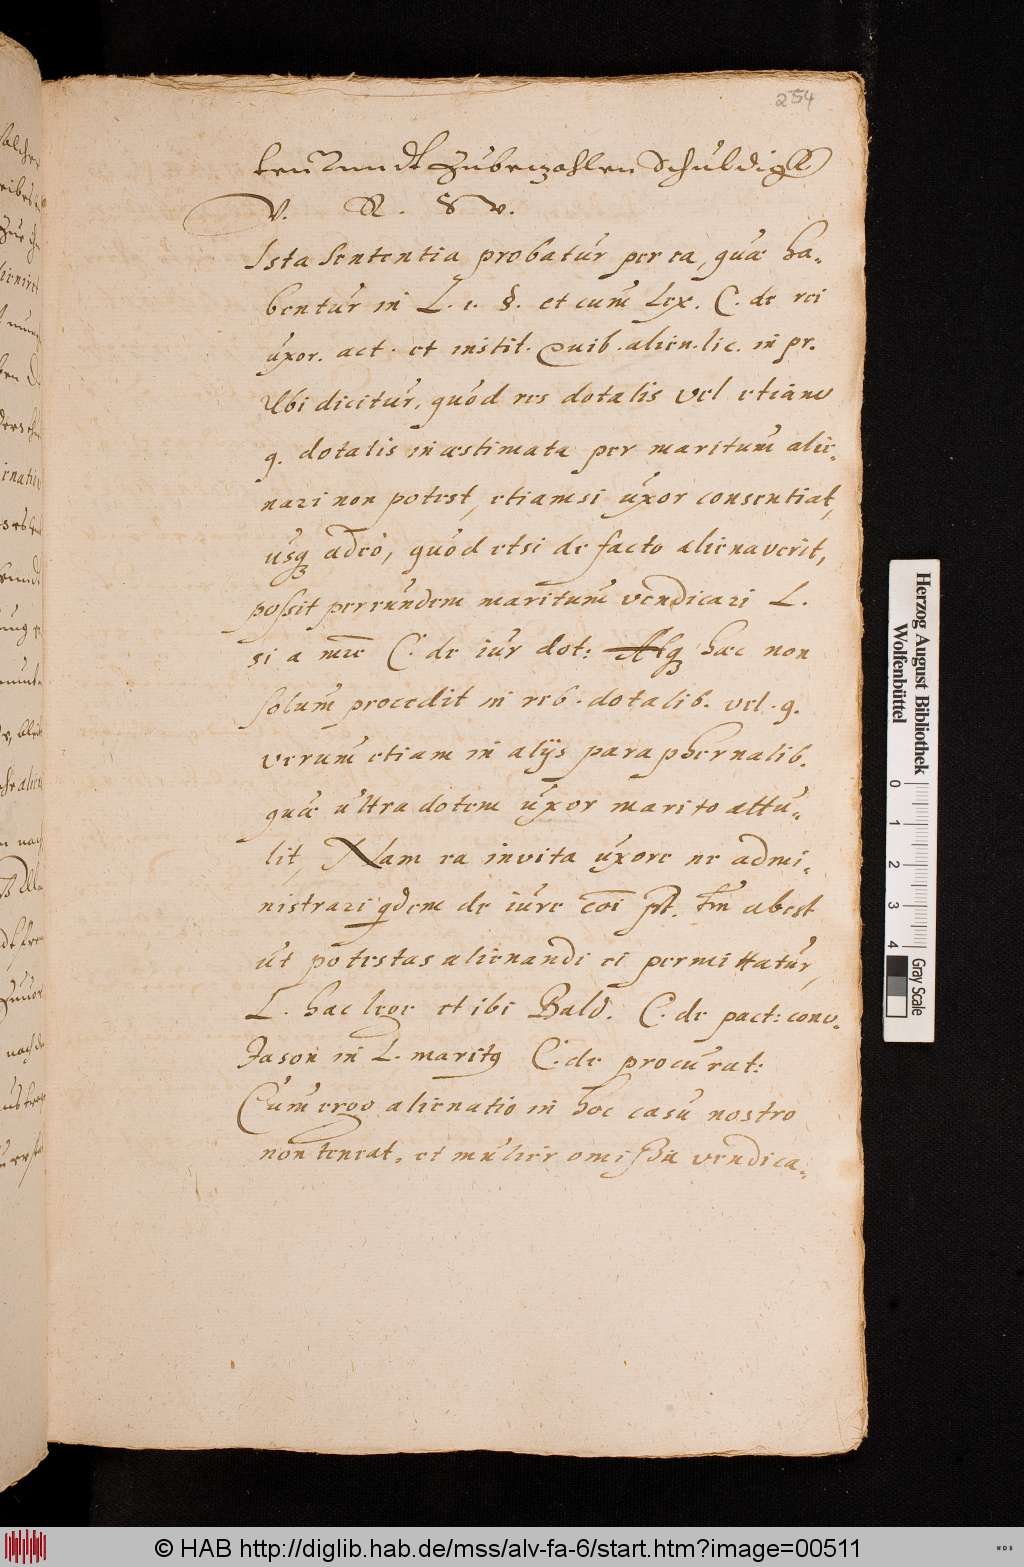 254
ten vnndt zubezahlen schuldigk
V. R. S. w.
Ista sententia probatur per ea, quæ ha-
bentur in L. 1. §. et cum Lex. C. de rei
uxor. act. et instit. Quib. alien. lic. in pr.
Vbi dicitur, quòd res dotalis vel etiam
q. dotalis inæstimata per maritum alie-
nari non potest, etiamsi uxor consentiat,
usq adeò, quòd etsi de facto alienaverit,
possit per eundem maritum vendicari L.
si a C. de iur dot: Atq hæc non
solum procedit in reb. dotalib. vel. q.
verum etiam in alijs paraphernalib.
quæ ultra dotem uxor marito attu-
lit, Nam ea invita uxore ne admi-
nistrari qdem de iure coi pnt. tm abest
ut potestas alienandi ei permittatur,
L. hac lege et ibi Bald. C. de pact: conv.
Jason in L. marit9 C. de procurat:
Cum ergo alienatio in hoc casu nostro
non teneat, et mulier omissa vendica-
Herzog August Bibliothek
Wolfenbüttel
0 1 2 3 4
Gray Scale
© HAB http://diglib.hab.de/mss/alv-fa-6/start.htm?image=00511